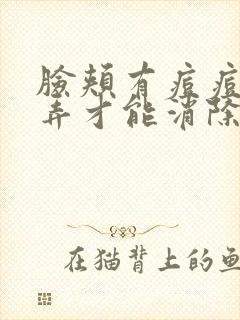 臉頰有痘痘
弄才能消除
在猫背上的鱼